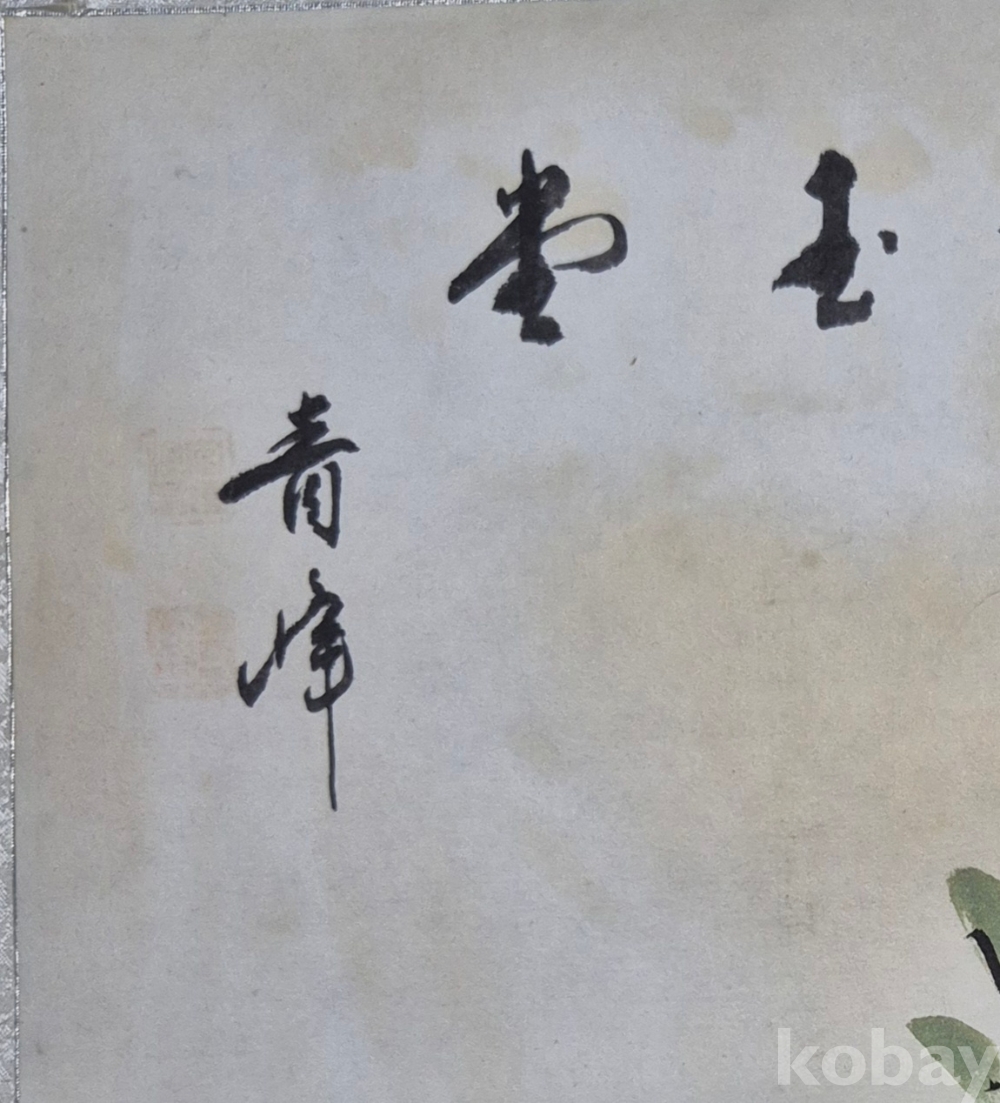 玉堂
青峰
kobay